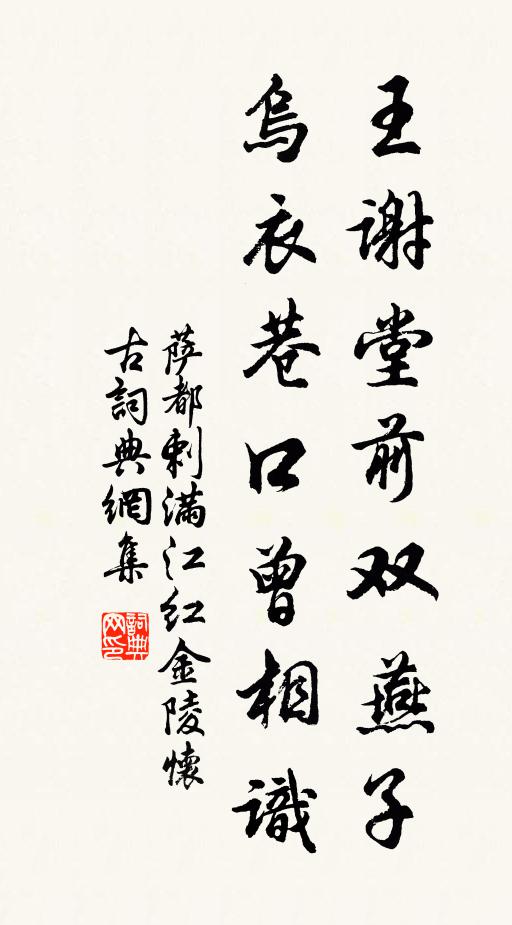 王谢堂前双燕子
乌衣巷口曾相識
萨都剌满江红金陵懷
古詞典網集
詞典网印